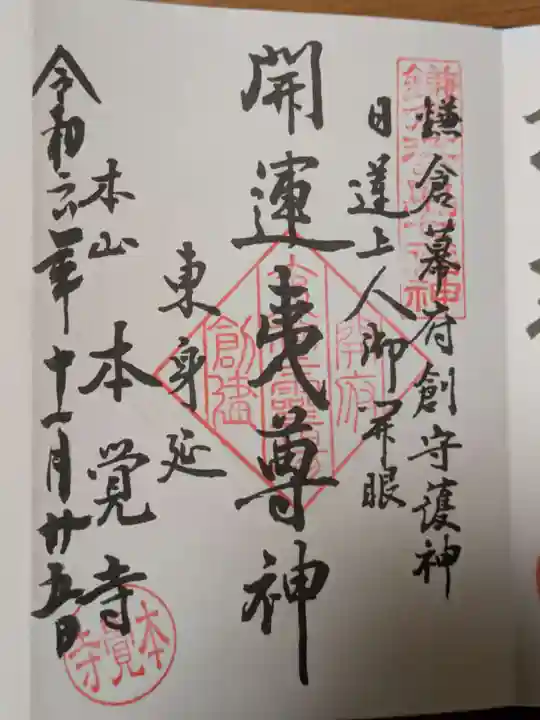 鎌倉幕府創守護神
日蓮上人御開眼
開運夷尊神
東身延
本山 本覚寺
令和六年十一月廿五日
創建
本覚寺